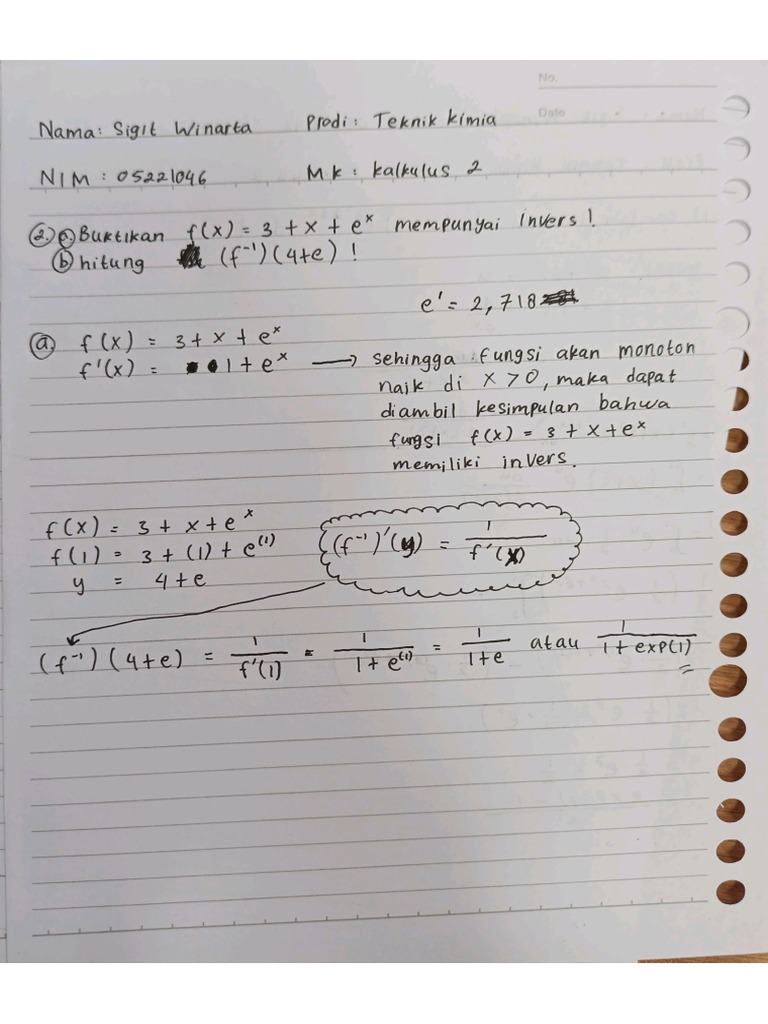 No.
Date
Nama: Sigit Winarta Prodi: Teknik kimia
NIM: 05221046 Mk: kalkulus 2
2. a. Buktikan f(x) = 3 + x + e^x mempunyai invers!
b hitung (f⁻¹)(4+e)!
e' = 2,718
a. f(x) = 3 + x + e^x
f'(x) = 1 + e^x → sehingga fungsi akan monoton
naik di x > 0, maka dapat
diambil kesimpulan bahwa
fungsi f(x) = 3 + x + e^x
memiliki invers.
f(x) = 3 + x + e^x
f(1) = 3 + (1) + e^(1) (f⁻¹)'(y) = 1/f'(x)
y = 4+e
(f⁻¹)(4+e) = 1/f'(1) = 1/1+e^(1) = 1/1+e atau 1/1+exp(1)